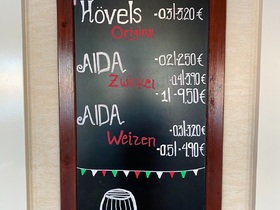 Hövels -0,3l 3,20 €
Original
AIDA -0,2l-2,50 €
Zwickel -0,4l 3,90 €
1l-9,50 €
AIDA
Weizen -0,3l 3,20 €
-0,5l-4,90 €